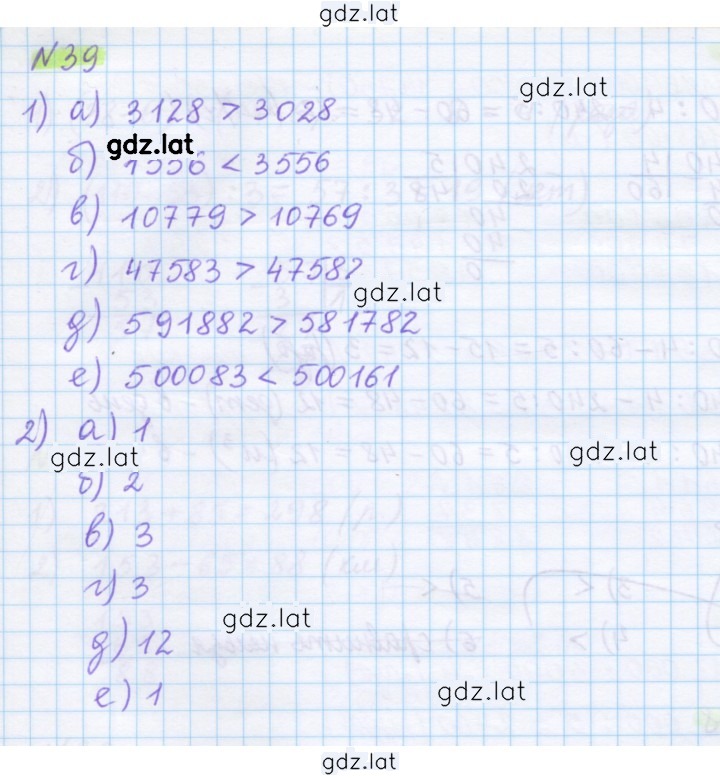 gdz.lat
N39
gdz.lat
1) а) 3128 > 3028
gdz.lat
б) < 3556
в) 10779 > 10769
г) 47583 > 47582
gdz.lat
д) 591882 > 581782
е) 500083 < 500161
2) а) 1
gdz.lat
gdz.lat
б) 2
в) 3
г) 3
gdz.lat
д) 12
е) 1
gdz.lat
gdz.lat